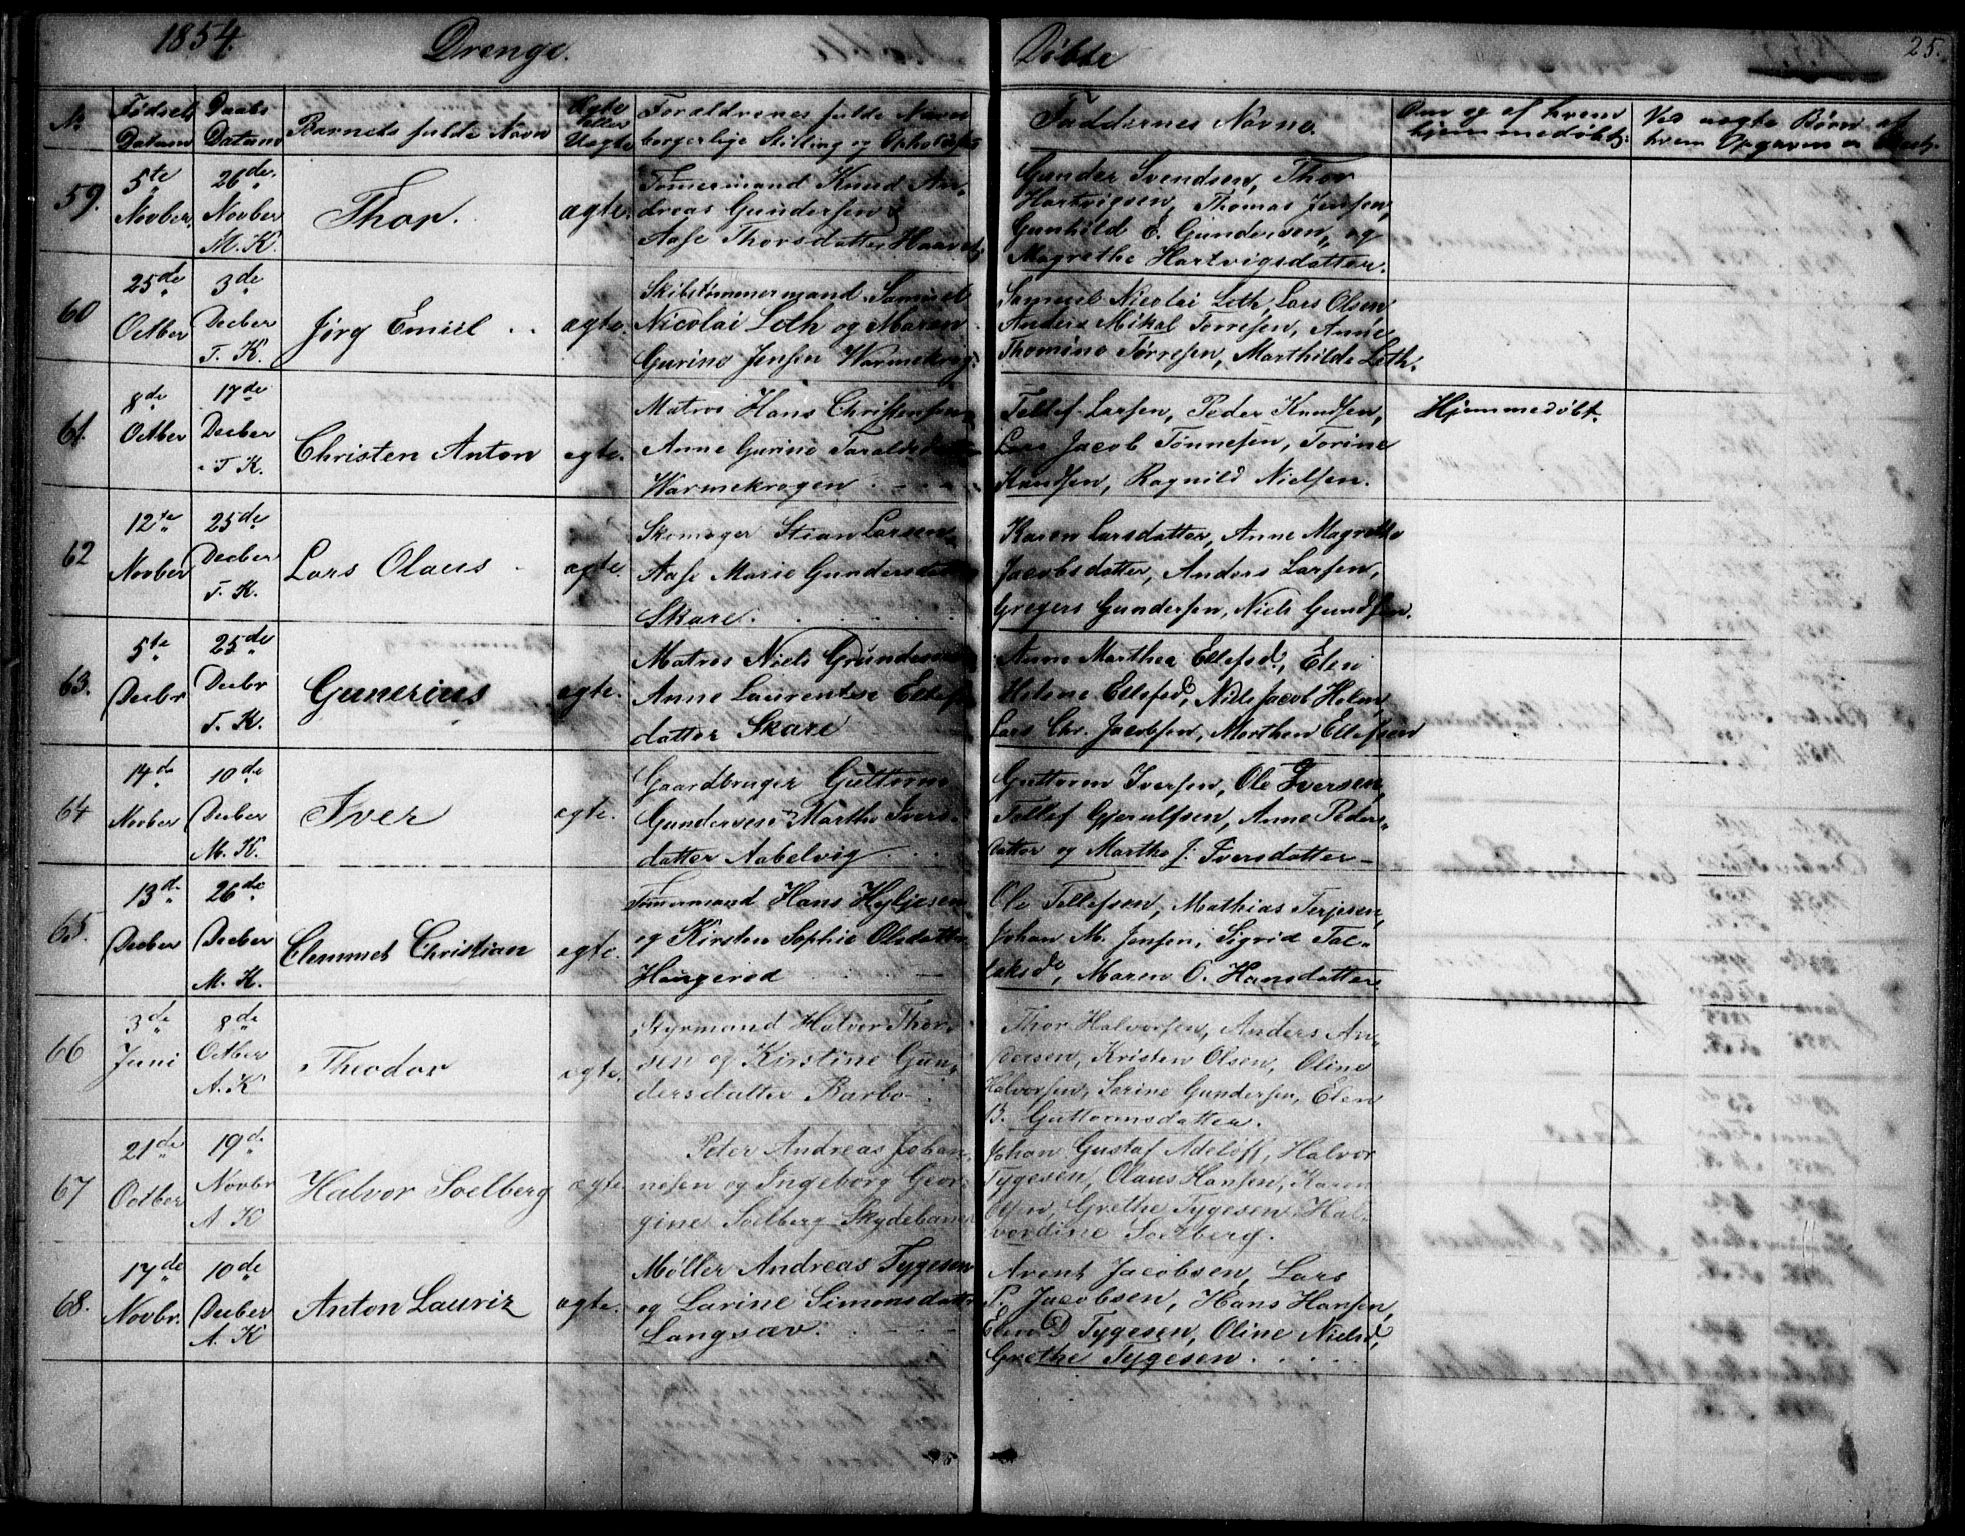 1854. Drenge. Døbte 25.
No. Fødsels Datum Daabs Datum Barnets fulde Navn Ægte eller Uægte Foraldrenes fulde Navn borgerlige Stilling og Opholdssted Faddernes Navne. Om og af hvem hjemmedøbt. Ved uægte Børn af hvem Opgaven er
59. 5te Novber. 26de Novber M. K. Thor. ægte.
Tømermand Knud An-
dreas Gundersen og
Aase Thorsdatter
Gunder Svendsen, Thor
Hartvigsen, Thomas Jensen,
Gunhild E. Gundersen, og
Magrethe Hartvigsdatter.
60 25de Octber 3de Decber T. K. Jørg Emiel ægte
Skibstømmermand Samuel
Nicolai Loth og Maren
Gurine Jensen Warmekrog.
Samuel Nicolai Loth, Lars Olsen
Anders Mikal Torresen, Anne
Thomine Tørresen, Marthilde Loth.
61. 8de Octber 17de Decber T. K. Christen Anton egte.
Matros Hans Christensen
Anne Gurine
Warmekrogen
Tellef Larsen, Peder Knudsen,
Lars Jacob Tønnesen, Torine
Knudsen, Ragnild Nielsen.
Hjemmedøbt.
62 12te Novber 25de Decber T. K. Lars Olaus ægte.
Skomager Stian Larsen
Aase Marie Gundersdatter
Skare.
Karen Larsdatter, Anne Magrethe
Jacobsdatter, Anders Larsen,
Gregers Gundersen, Niels Gundersen.
63. 5te Decbr 25de Decbr T. K. Gunerius egte.
Matros Niels Gundersen
Anne Laurentse Ellefs
datter Skare
Anne Marthea Ellefsd, Elen
Helene Ellefsd, Niels Jacob Holm,
Lars Chr. Jacobsen, Morthen Ellefsen
64 14de Novber 10de Decber M. K. Iver egte.
Gaardbruger Guttorm
Gundersen Marthe Ivers-
datter Aabelvig
Guttorm Iversen, Ole Iversen,
Tellef Gjerulfsen, Anne Peders-
datter og Marthe J. Iversdatter
65. 13de Decber 26de Decber M. K. Clemmet Christian egte.
Tømermand Hans
og Kirsten Sophie Olsdatter
Haugerod
Ole Tellefsen, Mathias Terjesen,
Johan M. Jensen, Sigrid Tal-
laksd, Maren O. Hansdatter.
66 3de Juni 8de Octber A. K Theodor egte.
Styrmand Halvor Thor-
sen og Kirstine Gun-
dersdatter Barbo
Thor Halvorsen, Anders An-
dersen, Kristen Olsen, Oline
Halvorsen, Serine Gundersen, Elen
B. Guttormsdatter.
67 21de Octber 19de Novbr A K Halvor Soelberg ægte.
Peter Andreas Johan-
nesen og Ingeborg Geor-
gine Soelberg Skydebanen
Johan Gustaf Adeloff, Halvor
Tygesen, Olaus Hansen, Karen
Olsen, Grethe Tygesen Hal-
vordine Soelberg.
68. 17de Novbr. 10de Decber A. K Anton Lauriz ægte.
Møller Andreas Tygesen
og Larine Simonsdatter
Langsæv.
Arent Jacobsen, Lars
P. Jacobsen, Hans Hansen,
Elen D Tygesen, Oline Nielsd,
Grethe Tygesen.